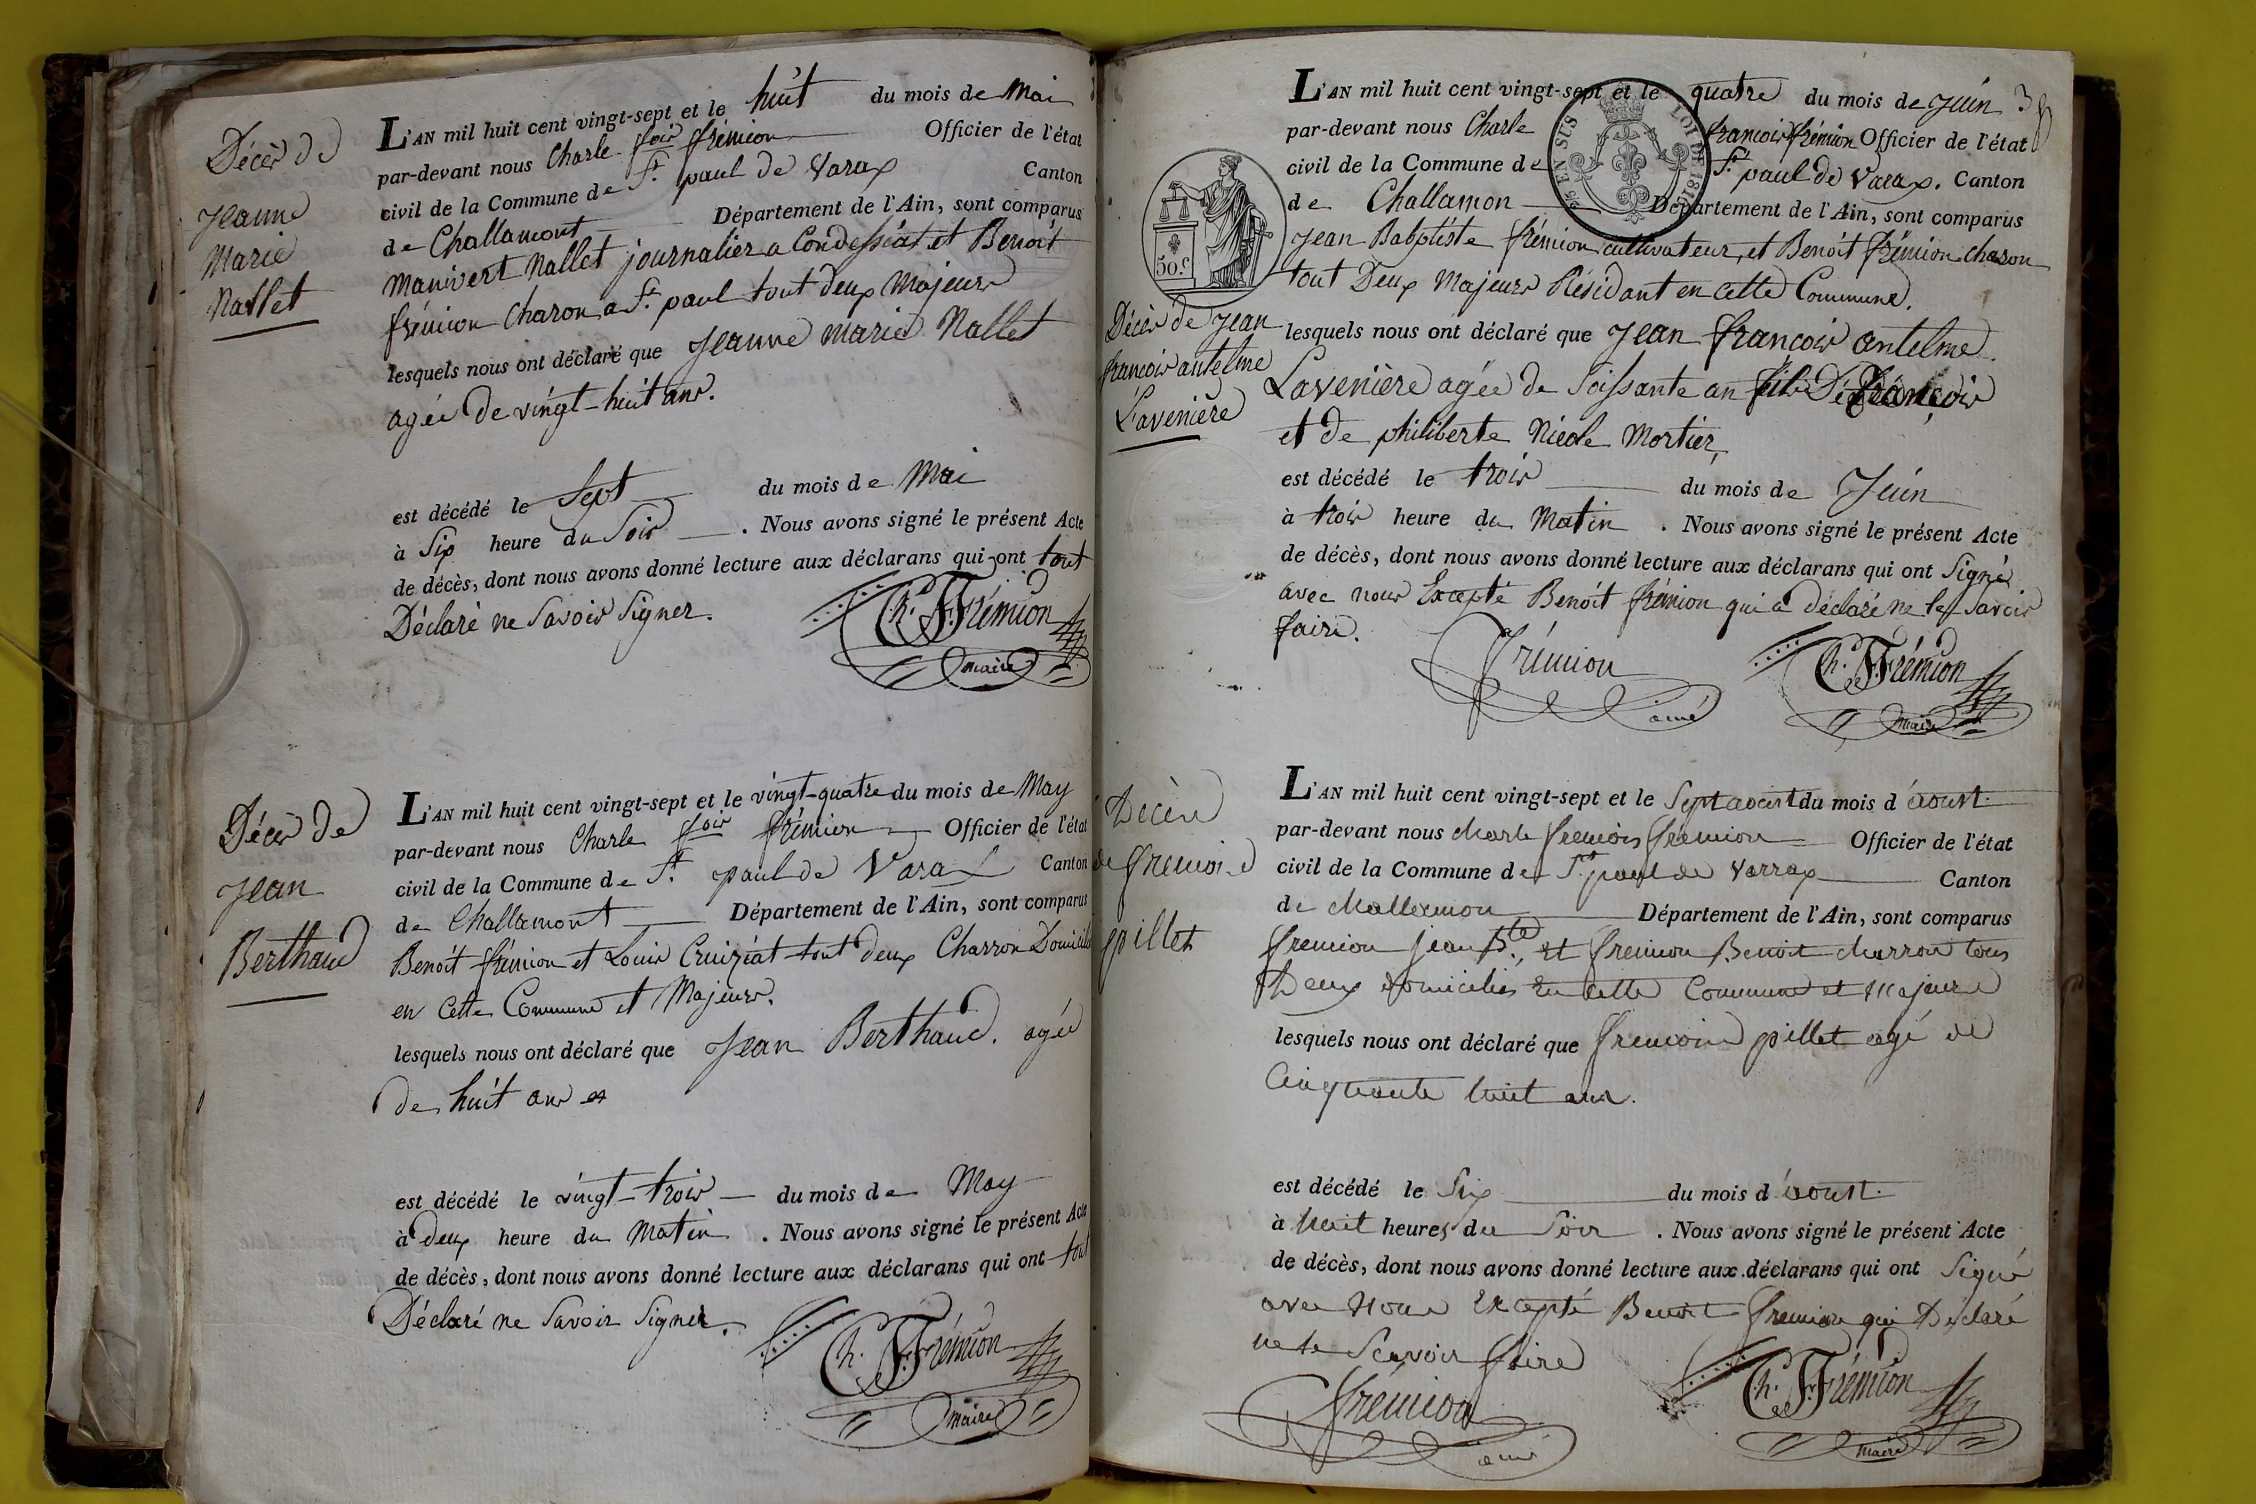 Décès de
Jeanne
Marie
Nallet
L'AN mil huit cent vingt-sept et le huit du mois de Mai
par-devant nous Charle fcois frémion Officier de l'état
civil de la Commune de St. paul de Varax Canton
de Challamont Département de l'Ain, sont comparus
Manivert Nallet journalier a Condessiat et Benoit
frémion Charon a St. paul tout deux Majeurs
lesquels nous ont déclaré que Jeanne Marie Nallet
agée de vingt-huit ans.
est décédé le Sept du mois de Mai
à Six heure du Soir . Nous avons signé le présent Acte
de décès, dont nous avons donné lecture aux déclarans qui ont tout
Déclaré ne Savoir Signer.
Ch. F. Frémion
maire
Décès de
Jean
Berthaud
L'AN mil huit cent vingt-sept et le vingt-quatre du mois de May
par-devant nous Charle fcois frémion Officier de l'état
civil de la Commune de St. paul de Varax Canton
de Challamont Département de l'Ain, sont comparus
Benoit frémion et Louis Cruiziat tout deux Charron Domicilié
en Cette Commune et Majeurs.
lesquels nous ont déclaré que Jean Berthaud. agée
de huit ans et
est décédé le vingt-trois du mois de May
à deux heure du Matin . Nous avons signé le présent Acte
de décès, dont nous avons donné lecture aux déclarans qui ont tout
Déclaré ne Savoir Signer.
Ch. F. Frémion
maire
L'AN mil huit cent vingt-sept et le quatre du mois de Juin
par-devant nous Charle francois frémion Officier de l'état
civil de la Commune de St. paul de Varax. Canton
de Challamon Département de l'Ain, sont comparus
Jean Baptiste frémion cultivateur, et Benoit frémion charon
tout Deux Majeurs Résidant en cette Commune.
EN SUS LOI DE
50.c
Décès de Jean
francois antelme
Lavenière
lesquels nous ont déclaré que Jean francois antelme
Lavenière agée de Soissante an fils De françois
et de philiberte Nicole Mortier,
est décédé le trois du mois de Juin
à trois heure du Matin . Nous avons signé le présent Acte
de décès, dont nous avons donné lecture aux déclarans qui ont Signé
avec nous Excepté Benoit frémion qui a déclaré ne le Savoir
faire.
frémion
ainé
Ch. F. Frémion
maire
Décès
de fremois
pillet
L'AN mil huit cent vingt-sept et le Sept aoust du mois d'aoust.
par-devant nous charle fremois fremion Officier de l'état
civil de la Commune de St. paul de Varrax Canton
de challamon Département de l'Ain, sont comparus
fremion jean Bte., et fremion Benoit charron tous
Deux domiciliés En Cette Commune et Majeure
lesquels nous ont déclaré que fremois pillet agé de
Cinquante huit ans.
est décédé le Six du mois d'aoust.
à huit heures du Soir . Nous avons signé le présent Acte
de décès, dont nous avons donné lecture aux déclarans qui ont Signé
avec Nous Excepté Benoit fremion qui Déclaré
ne le Scavoir faire
frémion
ainé
Ch. F. Frémion
maire